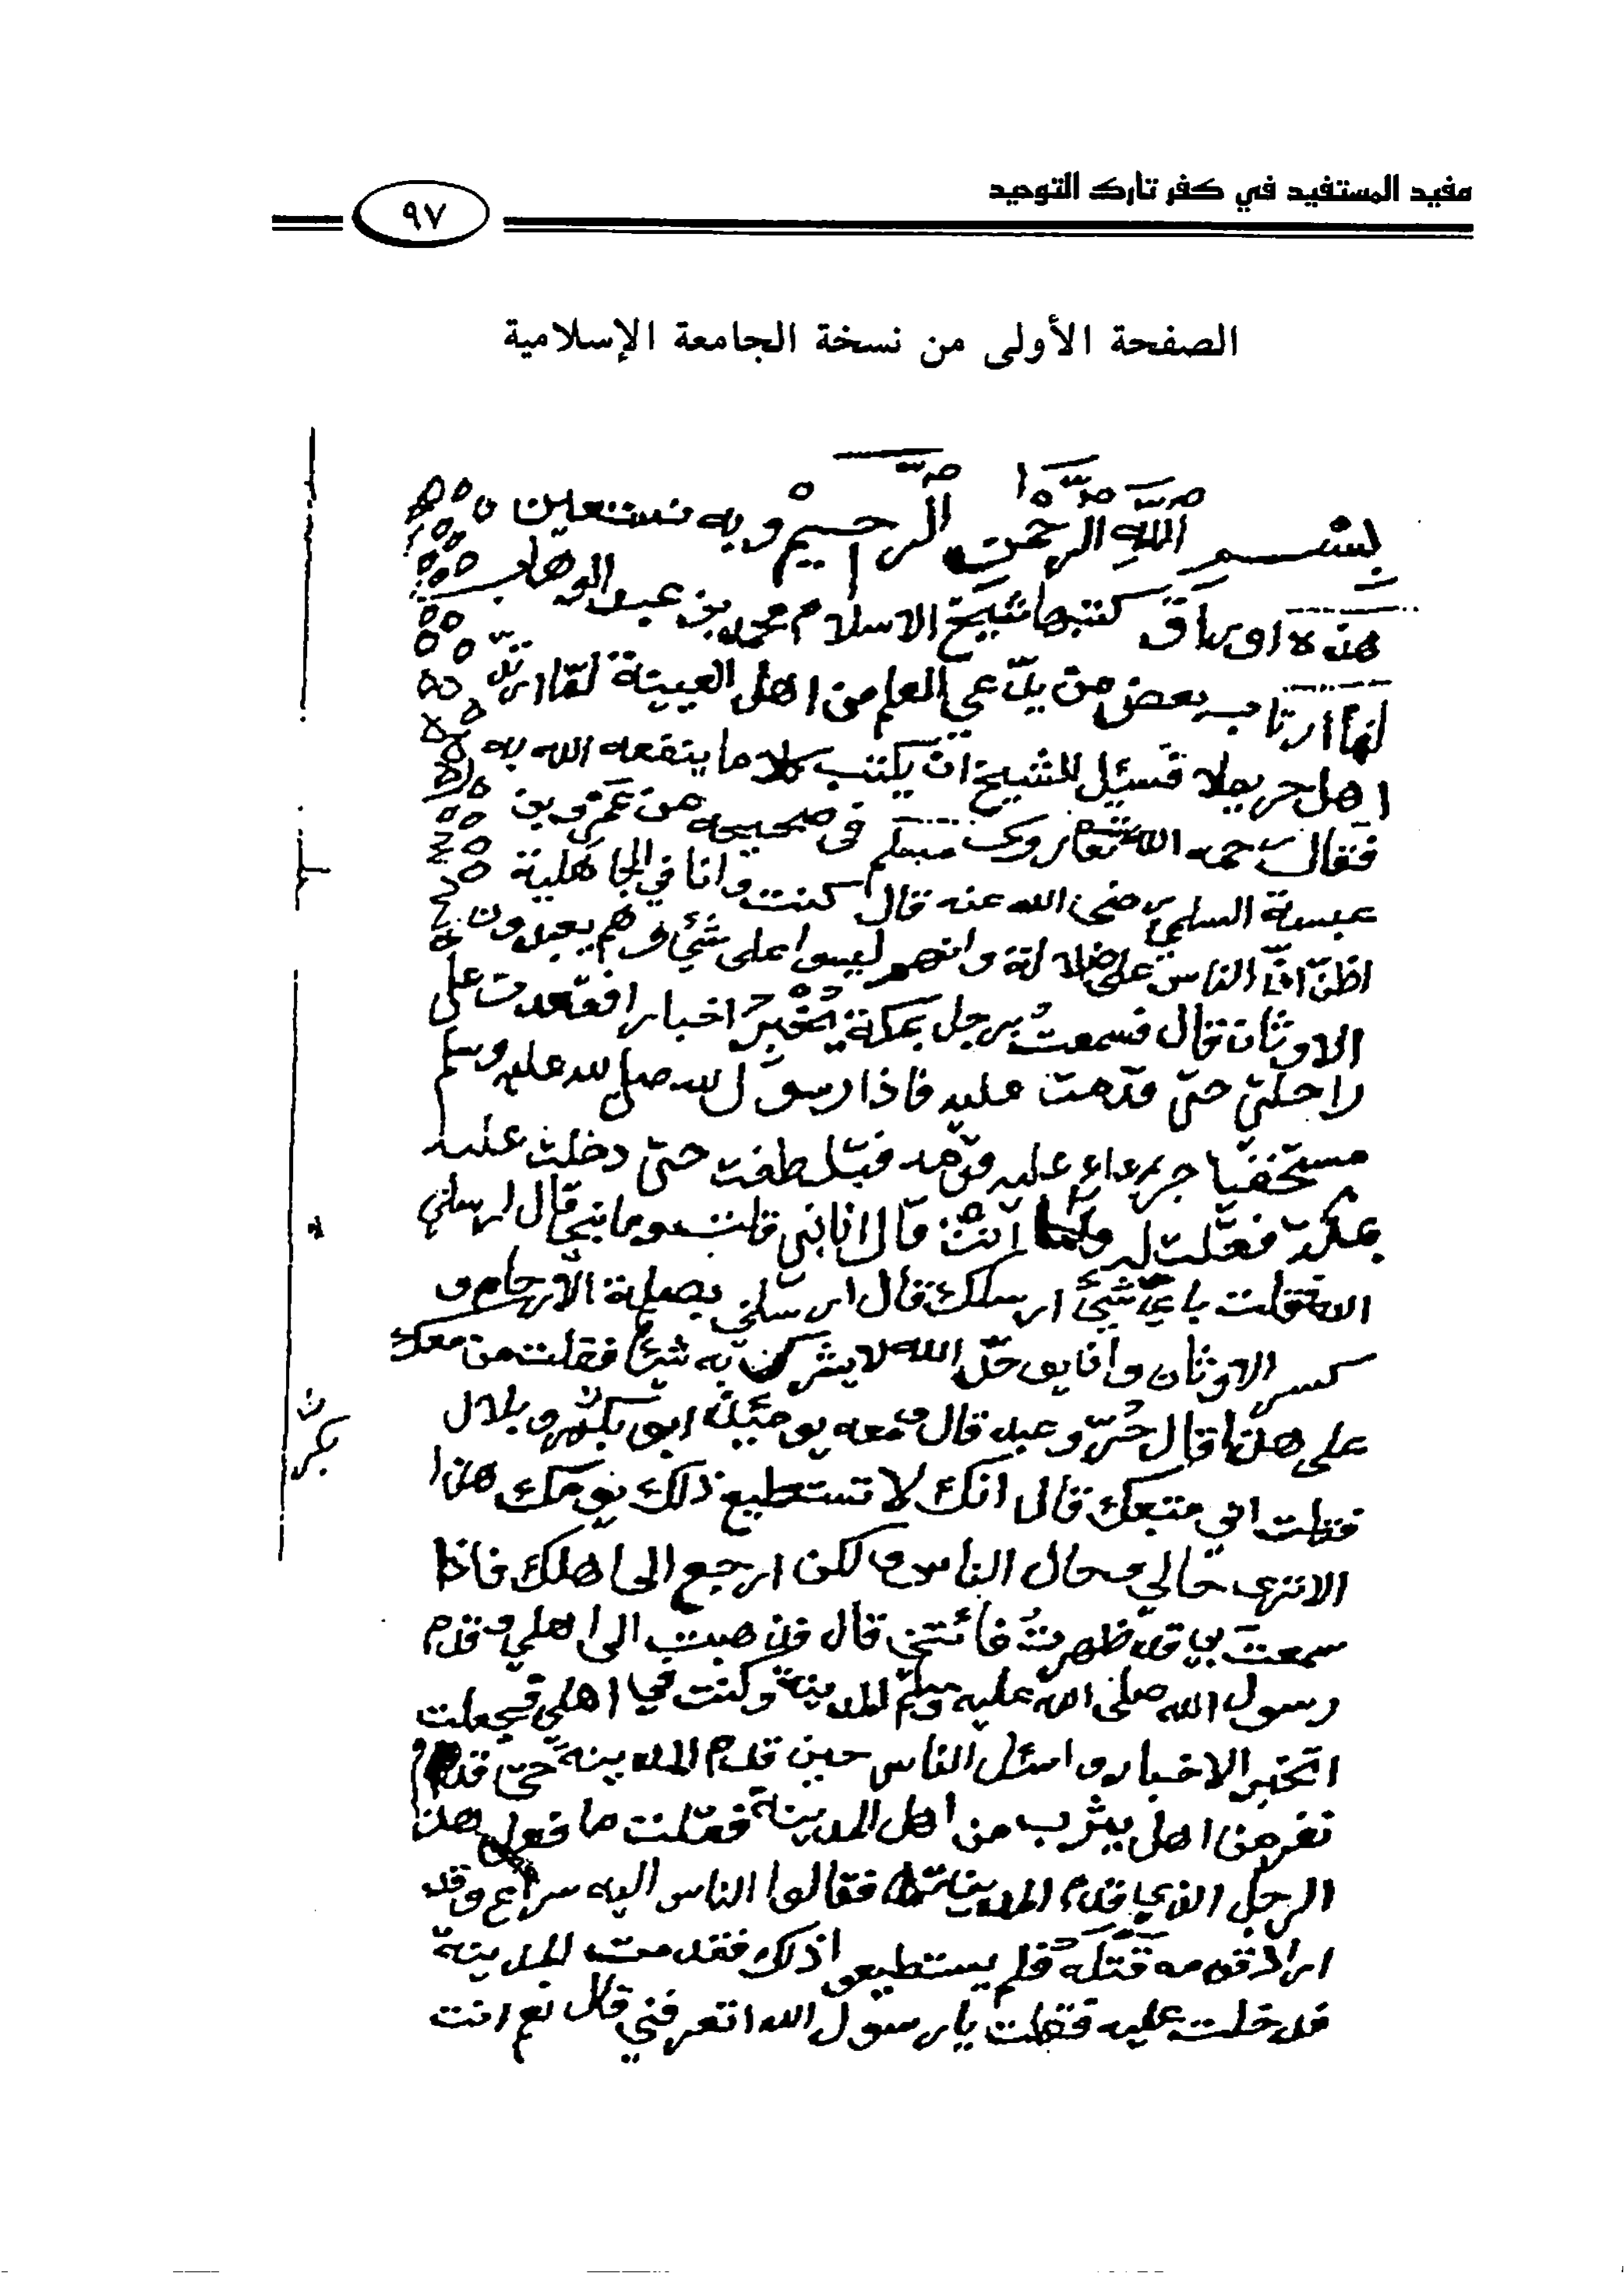 مفيد المستفيد في كفر تارك التوحيد
٩٧
الصفحة الأولى من نسخة الجامعة الإسلامية
بسم الله الرحمن الرحيم وبه نستعين
هذه اوراق كتبها شيخ الاسلام محمد بن عبد الوهاب
لما ارتاب بعض من يدعي العلم من اهل العيينة لما ارتد
اهل حريملا فسئل الشيخ ان يكتب كلاما ينفعه الله به
فقال رحمه الله تعا روى مسلم في صحيحه عن عمرو بن
عبسة السلمي رضي الله عنه قال كنت وانا في الجاهلية
اظن ان الناس على ضلالة وانهم ليسوا على شيء وهم يعبدون
الاوثان قال فسمعت برجل بمكة يخبر اخبارا فقعدت على
راحلتي حتى قدمت عليه فاذا رسول الله صلى الله عليه وسلم
مستخفيا جرءاء عليه قومه فتلطفت حتى دخلت عليه
بمكة فقلت له وما انت قال انا نبي قلت وما نبي قال ارسلني
الله فقلت باي شيئ ارسلك قال ارسلني بصلة الارحام و
كسر الاوثان وان يوحد الله لا يشرك به شيئا فقلت من معك
على هذا قال حر وعبد قال ومعه يومئذ ابو بكر وبلال
فقلت اني متبعك قال انك لا تستطيع ذلك يومك هذا
الا ترى حالي وحال الناس ولكن ارجع الى اهلك فاذا
سمعت بي قد ظهرت فائتني قال فذهبت الى اهلي وقدم
رسول الله صلى الله عليه وسلم المدينة وكنت في اهلي فجعلت
اتخبر الاخبار واسئل الناس حين قدم المدينة حتى قدم
نفر من اهل يثرب من اهل المدينة فقلت ما فعل هذا
الرجل الذي قدم المدينة فقالوا الناس اليه سراع وقد
اراد قومه قتله فلم يستطيعوا ذلك فقدمت المدينة
فدخلت عليه فقلت يا رسول الله اتعرفني قال نعم انت